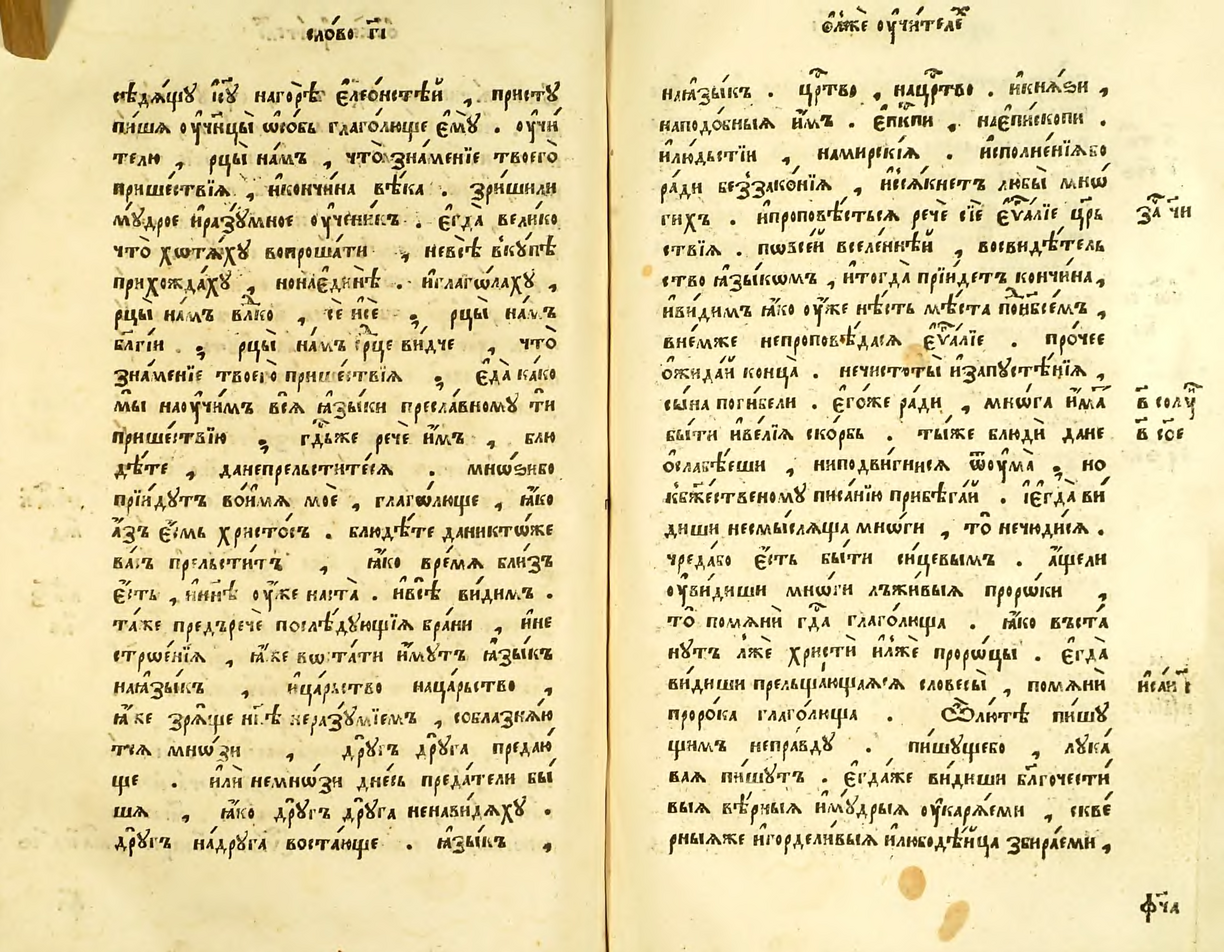 сло́во г҃і
сѣдѧ́щꙋ і҆с҃ꙋ нагорѣ̀ є҆леѡ́нстѣй , пристꙋ
пи́шѧ оу҆чн҃цы̀ ѡ҆со́бь глаго́люще є҆мꙋ̀ . оу҆чи́
телю , рцы̀ на́мъ , что̀ зна́менїе твоегѡ̀
прише́ствїѧ , и҆кончи́на вѣ́ка . зри́шили
мꙋ́дрое и҆разꙋ́мное оу҆чени́къ . є҆гда̀ вели́ко
что̀ хотѧ́хꙋ вопроша́ти , невсѝ вкꙋ́пѣ
прихожда́хꙋ , нонаедн҃ѣ . и҆глаго́лахꙋ ,
рцы̀ на́мъ вл҃ко , се і҆се , рцы̀ на́мъ
бл҃гі́и , рцы̀ на́мъ ср҃це ви́дче , что
зна́менїе твоегѡ̀ прише́ствїѧ , є҆да̀ ка́ко
мы̀ наоу҆чи́мъ всѧ̀ ꙗ҆зы́ки пресла́вномꙋ ти
прише́ствїю , гд҃ьже речѐ и҆́мъ , блю
дѣ́те , данепрельсти́тесѧ . мно́ѕибо
прїи́дꙋтъ вои́мѧ моѐ , глаго́люще , ꙗ҆́ко
а҆́зъ є҆́смь христо́съ . блюдѣ́те даникто́же
ва́съ прельсти́тъ , ꙗ҆́ко вре́мѧ бли́зъ
є҆́сть , и҆нн҃ѣ оу҆же наста̀ . и҆всѣ̀ ви́димъ .
та́же предъречѐ послѣ́дꙋющїѧ бра́ни , и҆не
строе́нїѧ , ꙗ҆́же воста́ти и҆́мꙋтъ ꙗ҆зы́къ
наꙗ҆зы́къ , и҆ца́рьство наца́рьство ,
ꙗ҆́же зрѧ́ще нн҃ѣ неразꙋ́мїемъ , соблазнѧ́ю
тсѧ мно́зи , дрꙋ́гъ дрꙋ́га предаю́
ще . и҆лѝ немно́зи дне́сь преда́тели бы́
шѧ , ꙗ҆́ко дрꙋ́гъ дрꙋ́га ненави́дѧхꙋ .
дрꙋ́гъ на́дрꙋга воста́юще . ꙗ҆зы́къ ,
ѡ҆лже оу҆чи́телех
наꙗ҆зы́къ . цр҃тво , нацр҃тво . и҆кнѧ́ѕи ,
наподо́бныѧ и҆́мъ . є҆пкпи , нае҆пи́скопи .
и҆лю́дьстїи , намирскі́ѧ . и҆сполне́нїѧбо
ра́ди беззако́нїѧ , и҆сѧ́кнетъ любы̀ мно́
гихъ . и҆пропове́стьсѧ речѐ сїѐ є҆ѵ҃а́лїе цр҃ь
ствїѧ . повсе́й вселе́ннѣй , восвидѣ́тель
ство ꙗ҆зы́комъ , и҆тогда̀ прїи́детъ кончи́на ,
и҆ви́димъ ꙗ҆́ко оу҆же нѣ́сть мѣ́ста понбсе́мъ ,
вне́мже непроповѣ́дасѧ є҆ѵ҃а́лїе . про́чее
ѡ҆жида́й конца̀ . нечистоты̀ и҆запꙋстѣ́нїѧ ,
сы́на поги́бели . є҆го́же ра́ди , мно́га и҆́ма
бы́ти и҆ве́лїѧ ско́рбь . ты́же блюдѝ дане
ѡ҆слабѣ́еши , ниподви́гнисѧ ѿоу҆ма̀ , но
кбж҃ественомꙋ писа́нїю прибѣга́й . і҆є҆гда̀ ви́
диши несмы́слѧща мно́ги , то̀ нечюди́сѧ .
чреда́бо є҆́сть бы́ти сицевы́мъ . а҆́щели
оу҆ви́диши мно́ги лъжи́выѧ проро́ки ,
то̀ помѧнѝ гд҃а глаго́люща . ꙗ҆́ко въста́
нꙋтъ лже христѝ и҆лже проро́цы . є҆гда̀
ви́диши прельща́ющаѧсѧ словесы̀ , помѧнѝ
проро́ка глаго́люща . Ѽлю́тѣ пи́шꙋ
щимъ непра́вдꙋ . пи́шꙋщебо , лꙋка́
ваѧ пи́шꙋтъ . є҆гда́же ви́диши бл҃гочести́
выѧ вѣ́рныѧ и҆мꙋ́дрыѧ оу҆карѧ́еми , скве́
рныѧже и҆горделивыѧ и҆любодѣ́йца збира́еми ,
за̑ ч҃и
в҃ солꙋ̑
в҃ с҃ѻе
и҆са́и
ф҃ча